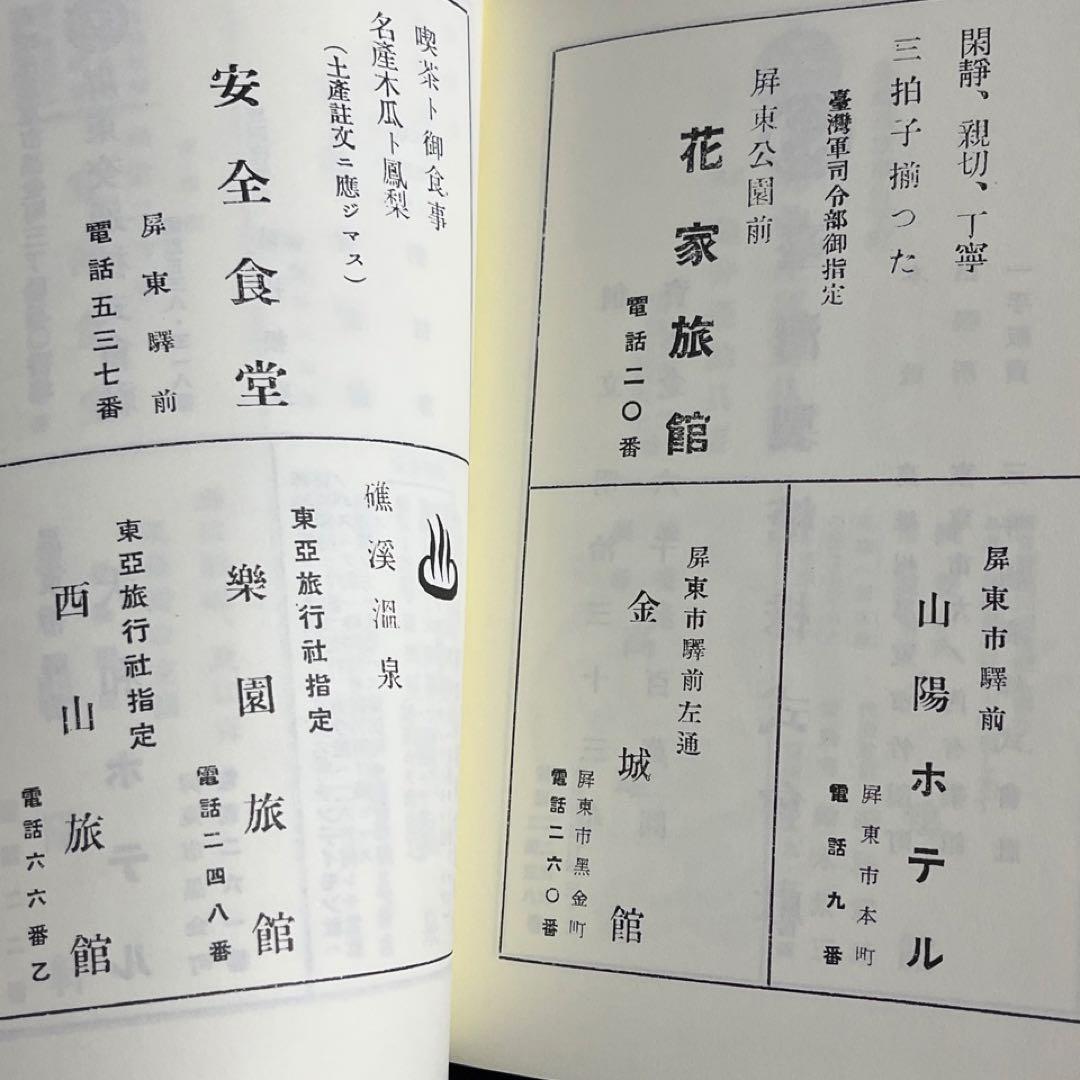 閑靜、親切、丁寧
三拍子揃つた
臺灣軍司令部御指定
屏東公園前
花家旅館
電話二〇番
屏東市驛前
山陽ホテル
屏東市本町
電話九番
屏東市驛前左通
金城館
屏東市黑金町
電話二六〇番
喫茶ト御食事
名產木瓜ト鳳梨
(土產註文ニ應ジマス)
安全食堂
屏東驛前
電話五三七番
礁溪溫泉
東亞旅行社指定
樂園旅館
電話二四八番
東亞旅行社指定
西山旅館
電話六六番乙